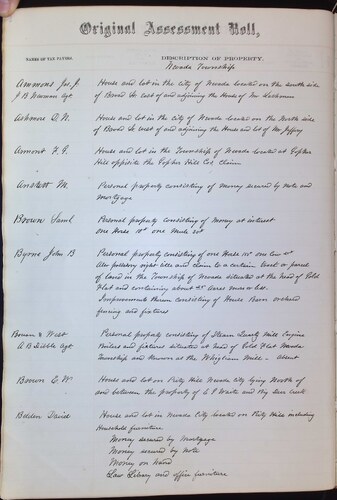 Original Assessment Roll,
NAMES OF TAX PAYERS.
DESCRIPTION OF PROPERTY.
Nevada Township
Ammons Jas. J. House and lot in the City of Nevada located on the south side
J B Newman Agt of Broad St East of and adjoining the House of Mr
Ashmore D. N. House and lot in the City of Nevada located on the North side
of Broad St East of and adjoining the House and lot of Mr Jeffrey
Amont F. J. House and lot in the Township of Nevada located at Gopher
Hill opposite the Gopher Hill Cos Claim
Anstett M. Personal property consisting of money secured by note and
mortgage
Brown Saml Personal property consisting of money at interest
one Horse one Mule
Byrne John B Personal property consisting of one Horse one Cow
Also possessory right title and claim to a certain tract or parcel
of land in the Township of Nevada situated at the head of Gold
Flat and containing about 45 acres more or less.
Improvements thereon consisting of House Barn orchard
fencing and fixtures
& West Personal property consisting of Steam Quartz Mill Engine
A B Dibble Agt Boilers and fixtures situated at head of Gold Flat Nevada
Township and known as the Mill -
Brown E. W. House and lot on Piety Hill Nevada City lying North of
and between the property of and Creek
Belden David House and lot in Nevada City located on Piety Hill including
Household furniture
Money secured by Mortgage
Money secured by note
Money on Hand
Law Library and office furniture